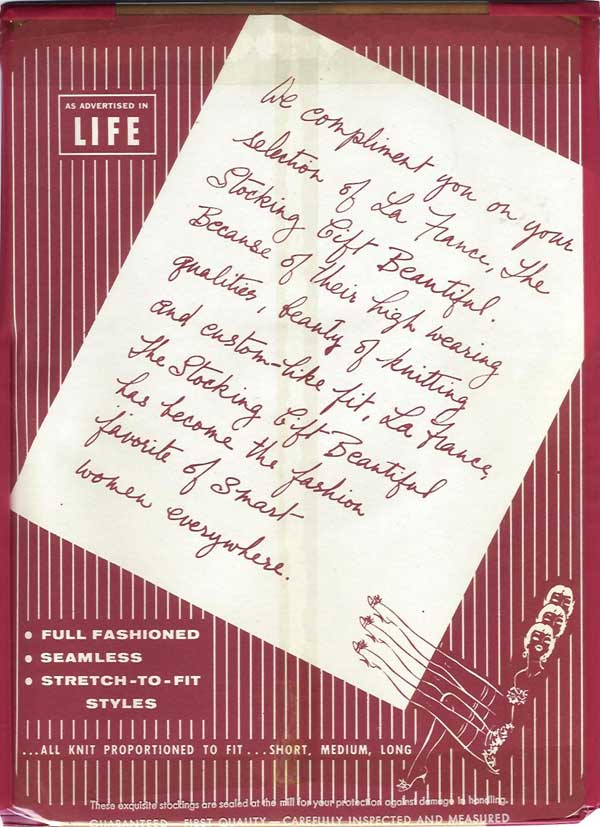 AS ADVERTISED IN
LIFE
We compliment you on your
selection of La France, The
Stocking Gift Beautiful.
Because of their high wearing
qualities, beauty of knitting
and custom-like fit, La France,
The Stocking Gift Beautiful
has become the fashion
favorite of smart
women everywhere.
• FULL FASHIONED
• SEAMLESS
• STRETCH-TO-FIT
STYLES
...ALL KNIT PROPORTIONED TO FIT...SHORT, MEDIUM, LONG
These exquisite stockings are sealed at the mill for your protection against damage in handling.
GUARANTEED — FIRST QUALITY — CAREFULLY INSPECTED AND MEASURED